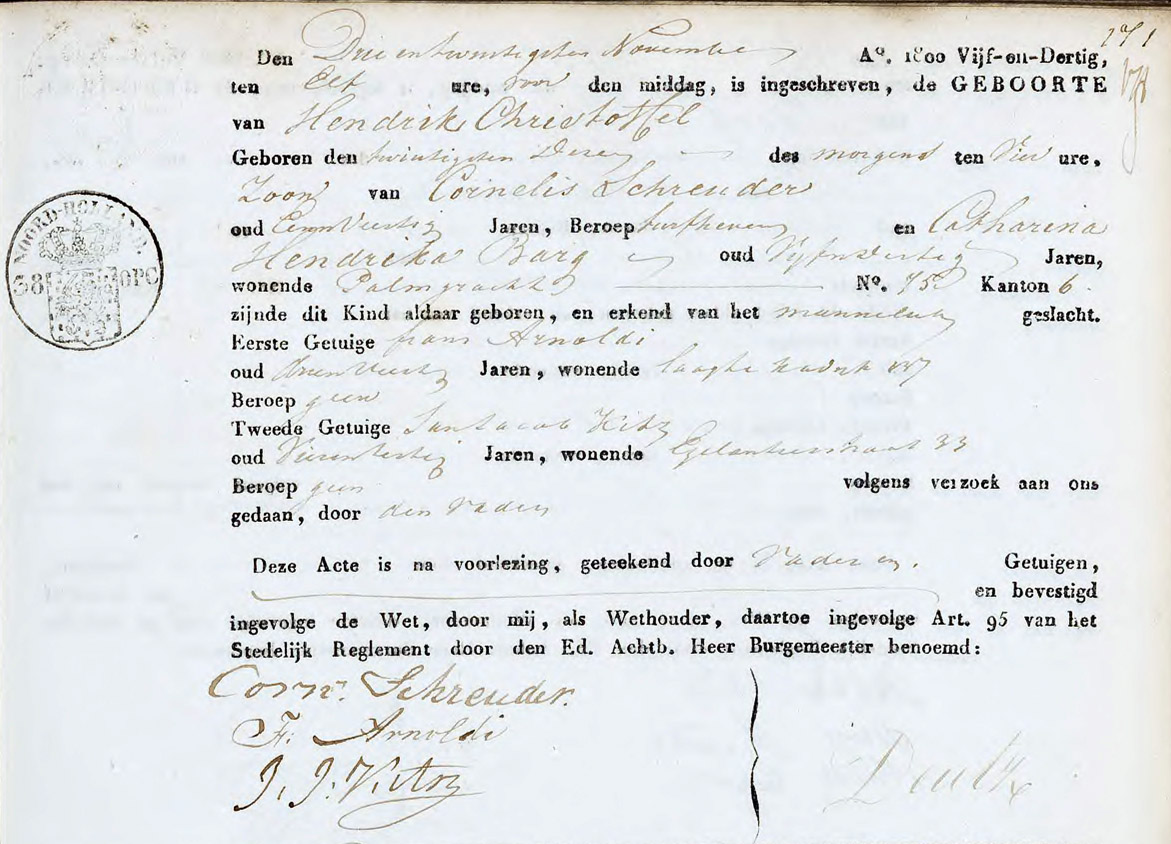 Den Drie en twintigsten November Aº. 1800 Vijf-en-Dertig,
ten Elf ure, voor den middag, is ingeschreven, de GEBOORTE
van Hendrik Christoffel
Geboren den twintigsten dezer des morgens ten Vier ure,
Zoon van Cornelis Schreuder
oud Eenen Veertig Jaren, Beroep en Catharina
Hendrika Barg oud Vijfendertig Jaren,
wonende Palmgracht Nº. 75 Kanton 6
zijnde dit Kind aldaar geboren, en erkend van het mannelijk geslacht.
Eerste Getuige frans Arnoldi
oud Jaren, wonende
Beroep geen
Tweede Getuige Jan Jacob
oud Vierendertig Jaren, wonende Egelantierstraat 33
Beroep geen volgens verzoek aan ons
gedaan, door den Vader
Deze Acte is na voorlezing, geteekend door Vader en Getuigen,
en bevestigd
ingevolge de Wet, door mij, als Wethouder, daartoe ingevolge Art. 95 van het
Stedelijk Reglement door den Ed. Achtb. Heer Burgemeester benoemd:
Corns. Schreuder.
F. Arnoldi
J. J.
NOORD-HOLLAND.
38 OPC